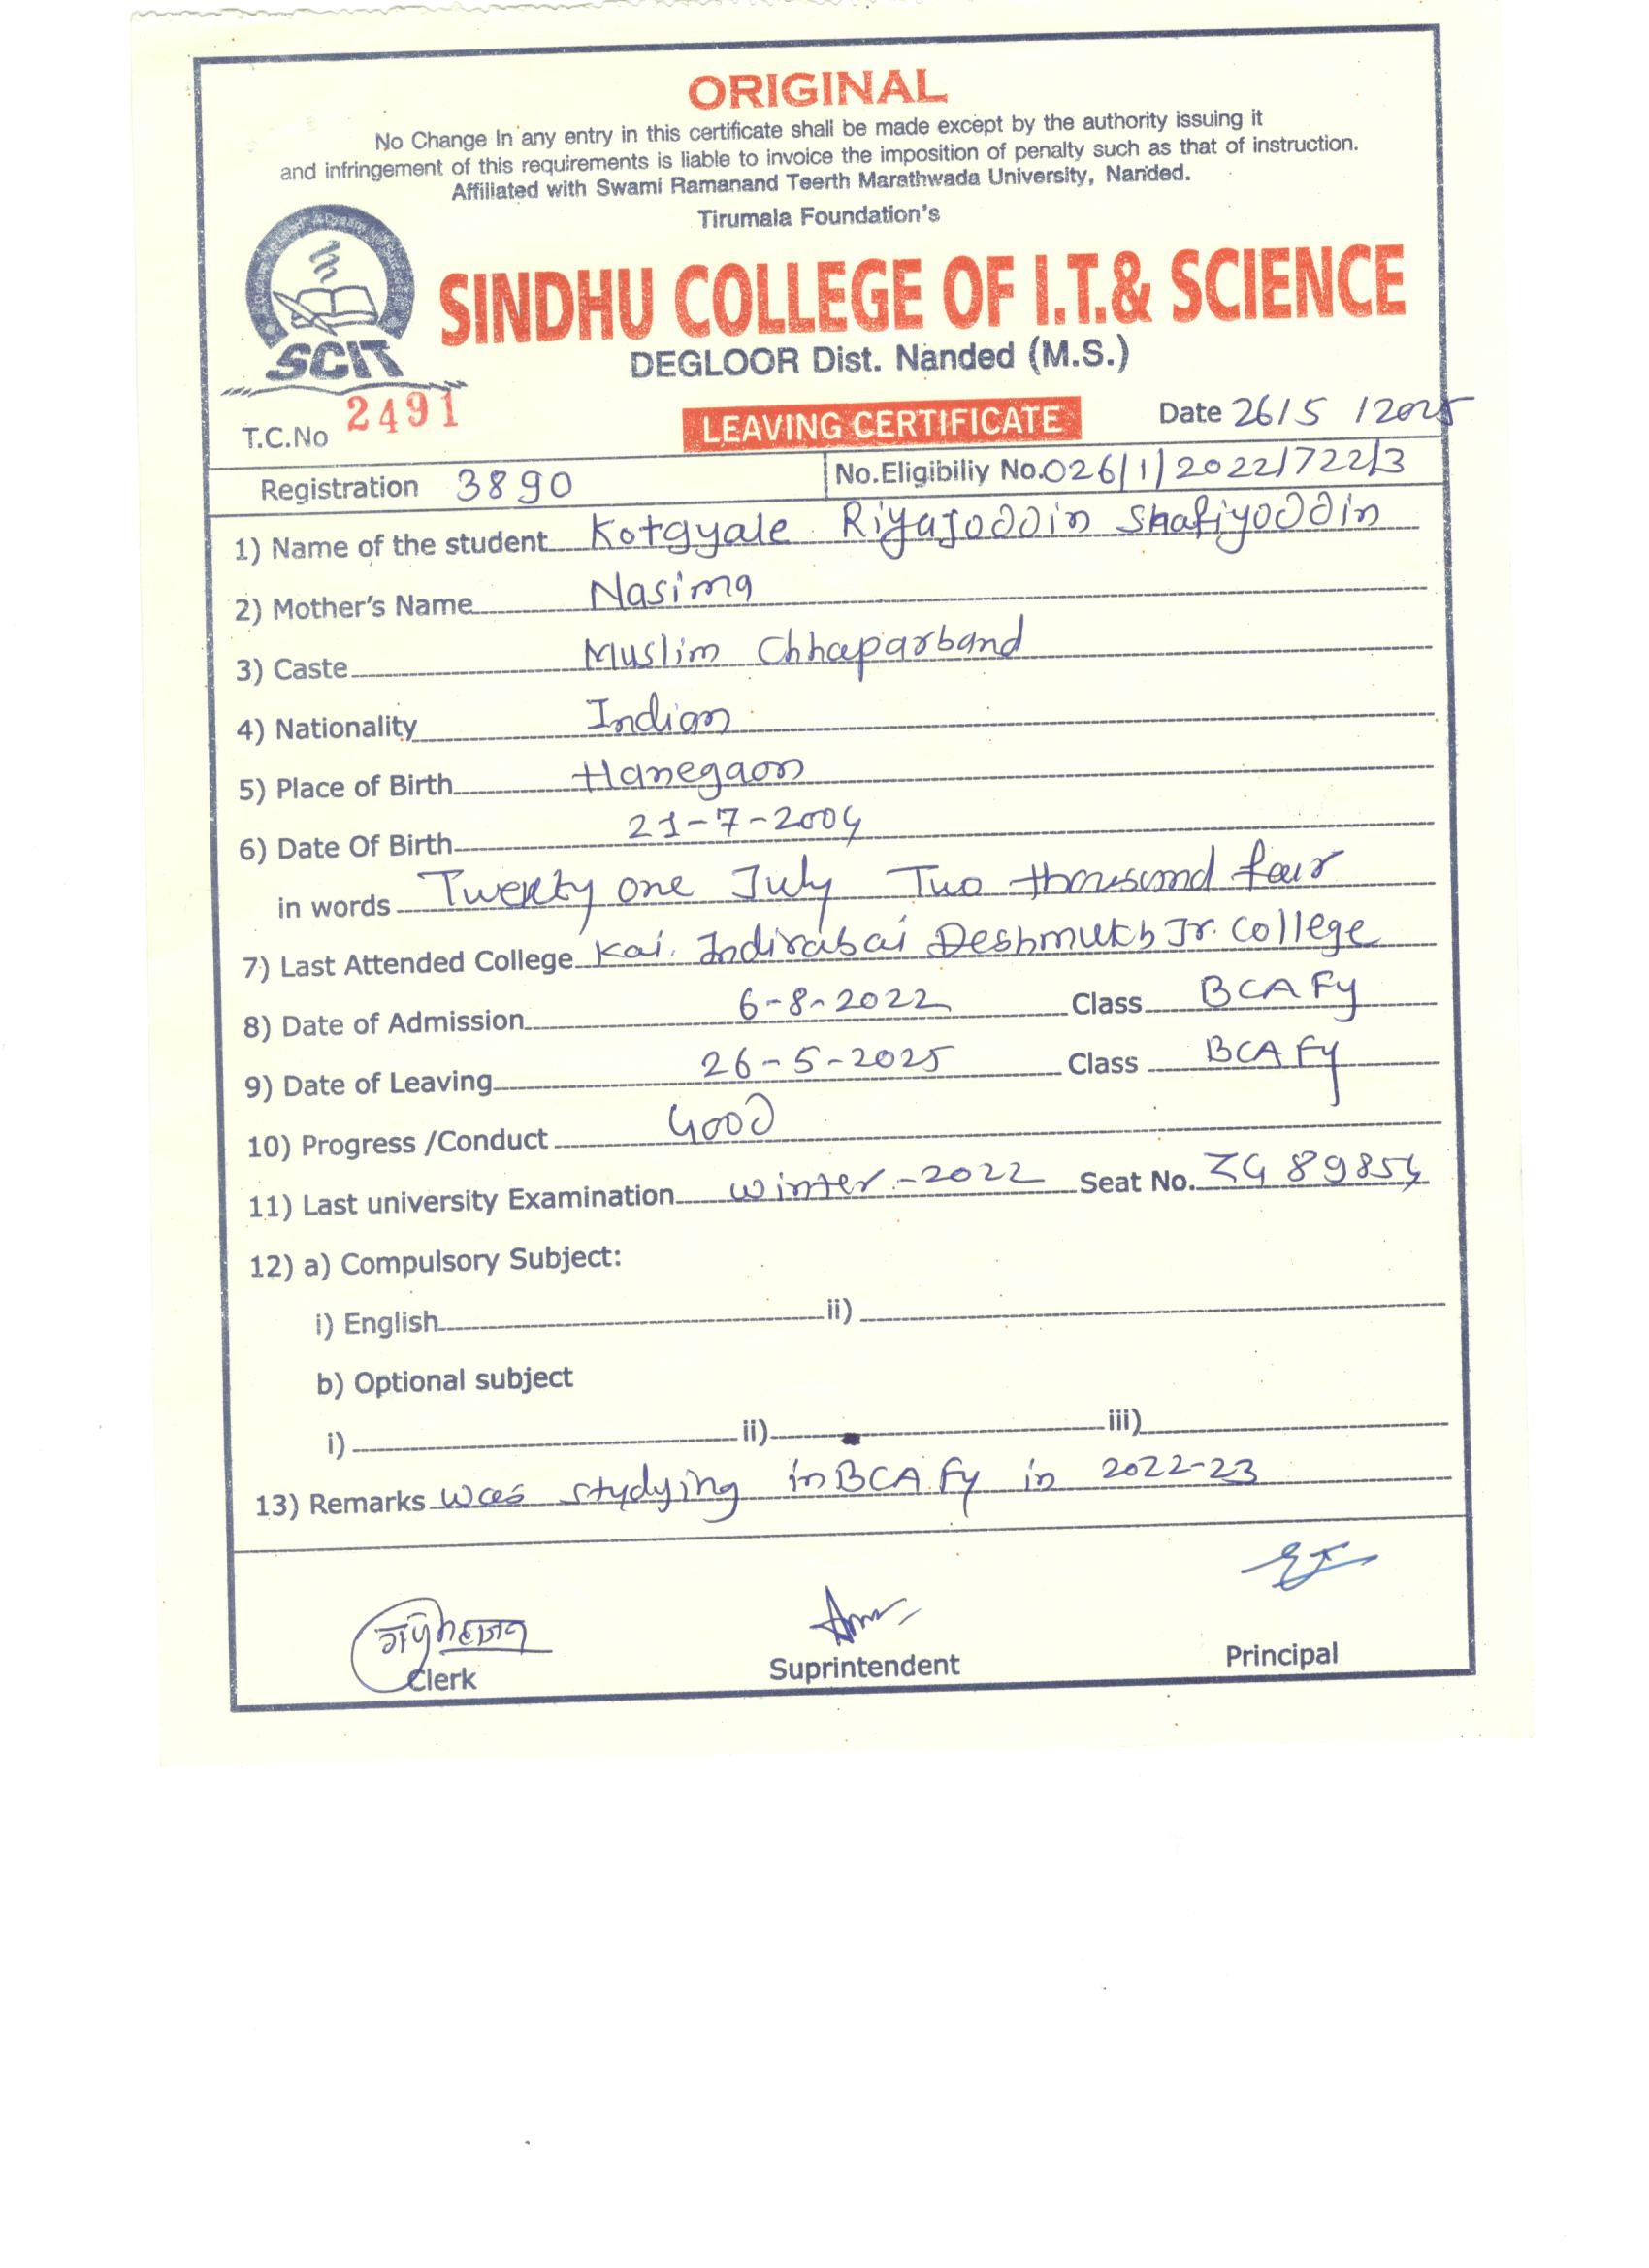 ORIGINAL
No Change In any entry in this certificate shall be made except by the authority issuing it
and infringement of this requirements is liable to invoice the imposition of penalty such as that of instruction.
Affiliated with Swami Ramanand Teerth Marathwada University, Nanded.
Tirumala Foundation's
SCIT
SINDHU COLLEGE OF I.T.& SCIENCE
DEGLOOR Dist. Nanded (M.S.)
T.C.No 2491 LEAVING CERTIFICATE Date 26/5 /2025
Registration 3890 No.Eligibiliy No.026/1/2022/722/3
1) Name of the student Kotgyale Riyajoddin Shafiyoddin
2) Mother's Name Nasima
3) Caste Muslim Chhaparband
4) Nationality Indian
5) Place of Birth Hanegaon
6) Date Of Birth 21-7-2004
in words Twenty one July Two thousand four
7) Last Attended College Kai. Indirabai Deshmukh Jr. College
8) Date of Admission 6-8-2022 Class BCA Fy
9) Date of Leaving 26-5-2025 Class BCA Fy
10) Progress /Conduct Good
11) Last university Examination winter-2022 Seat No. ZG 89854
12) a) Compulsory Subject:
i) English ii)
b) Optional subject
i) ii) iii)
13) Remarks Was studying in BCA Fy in 2022-23
Clerk Suprintendent Principal